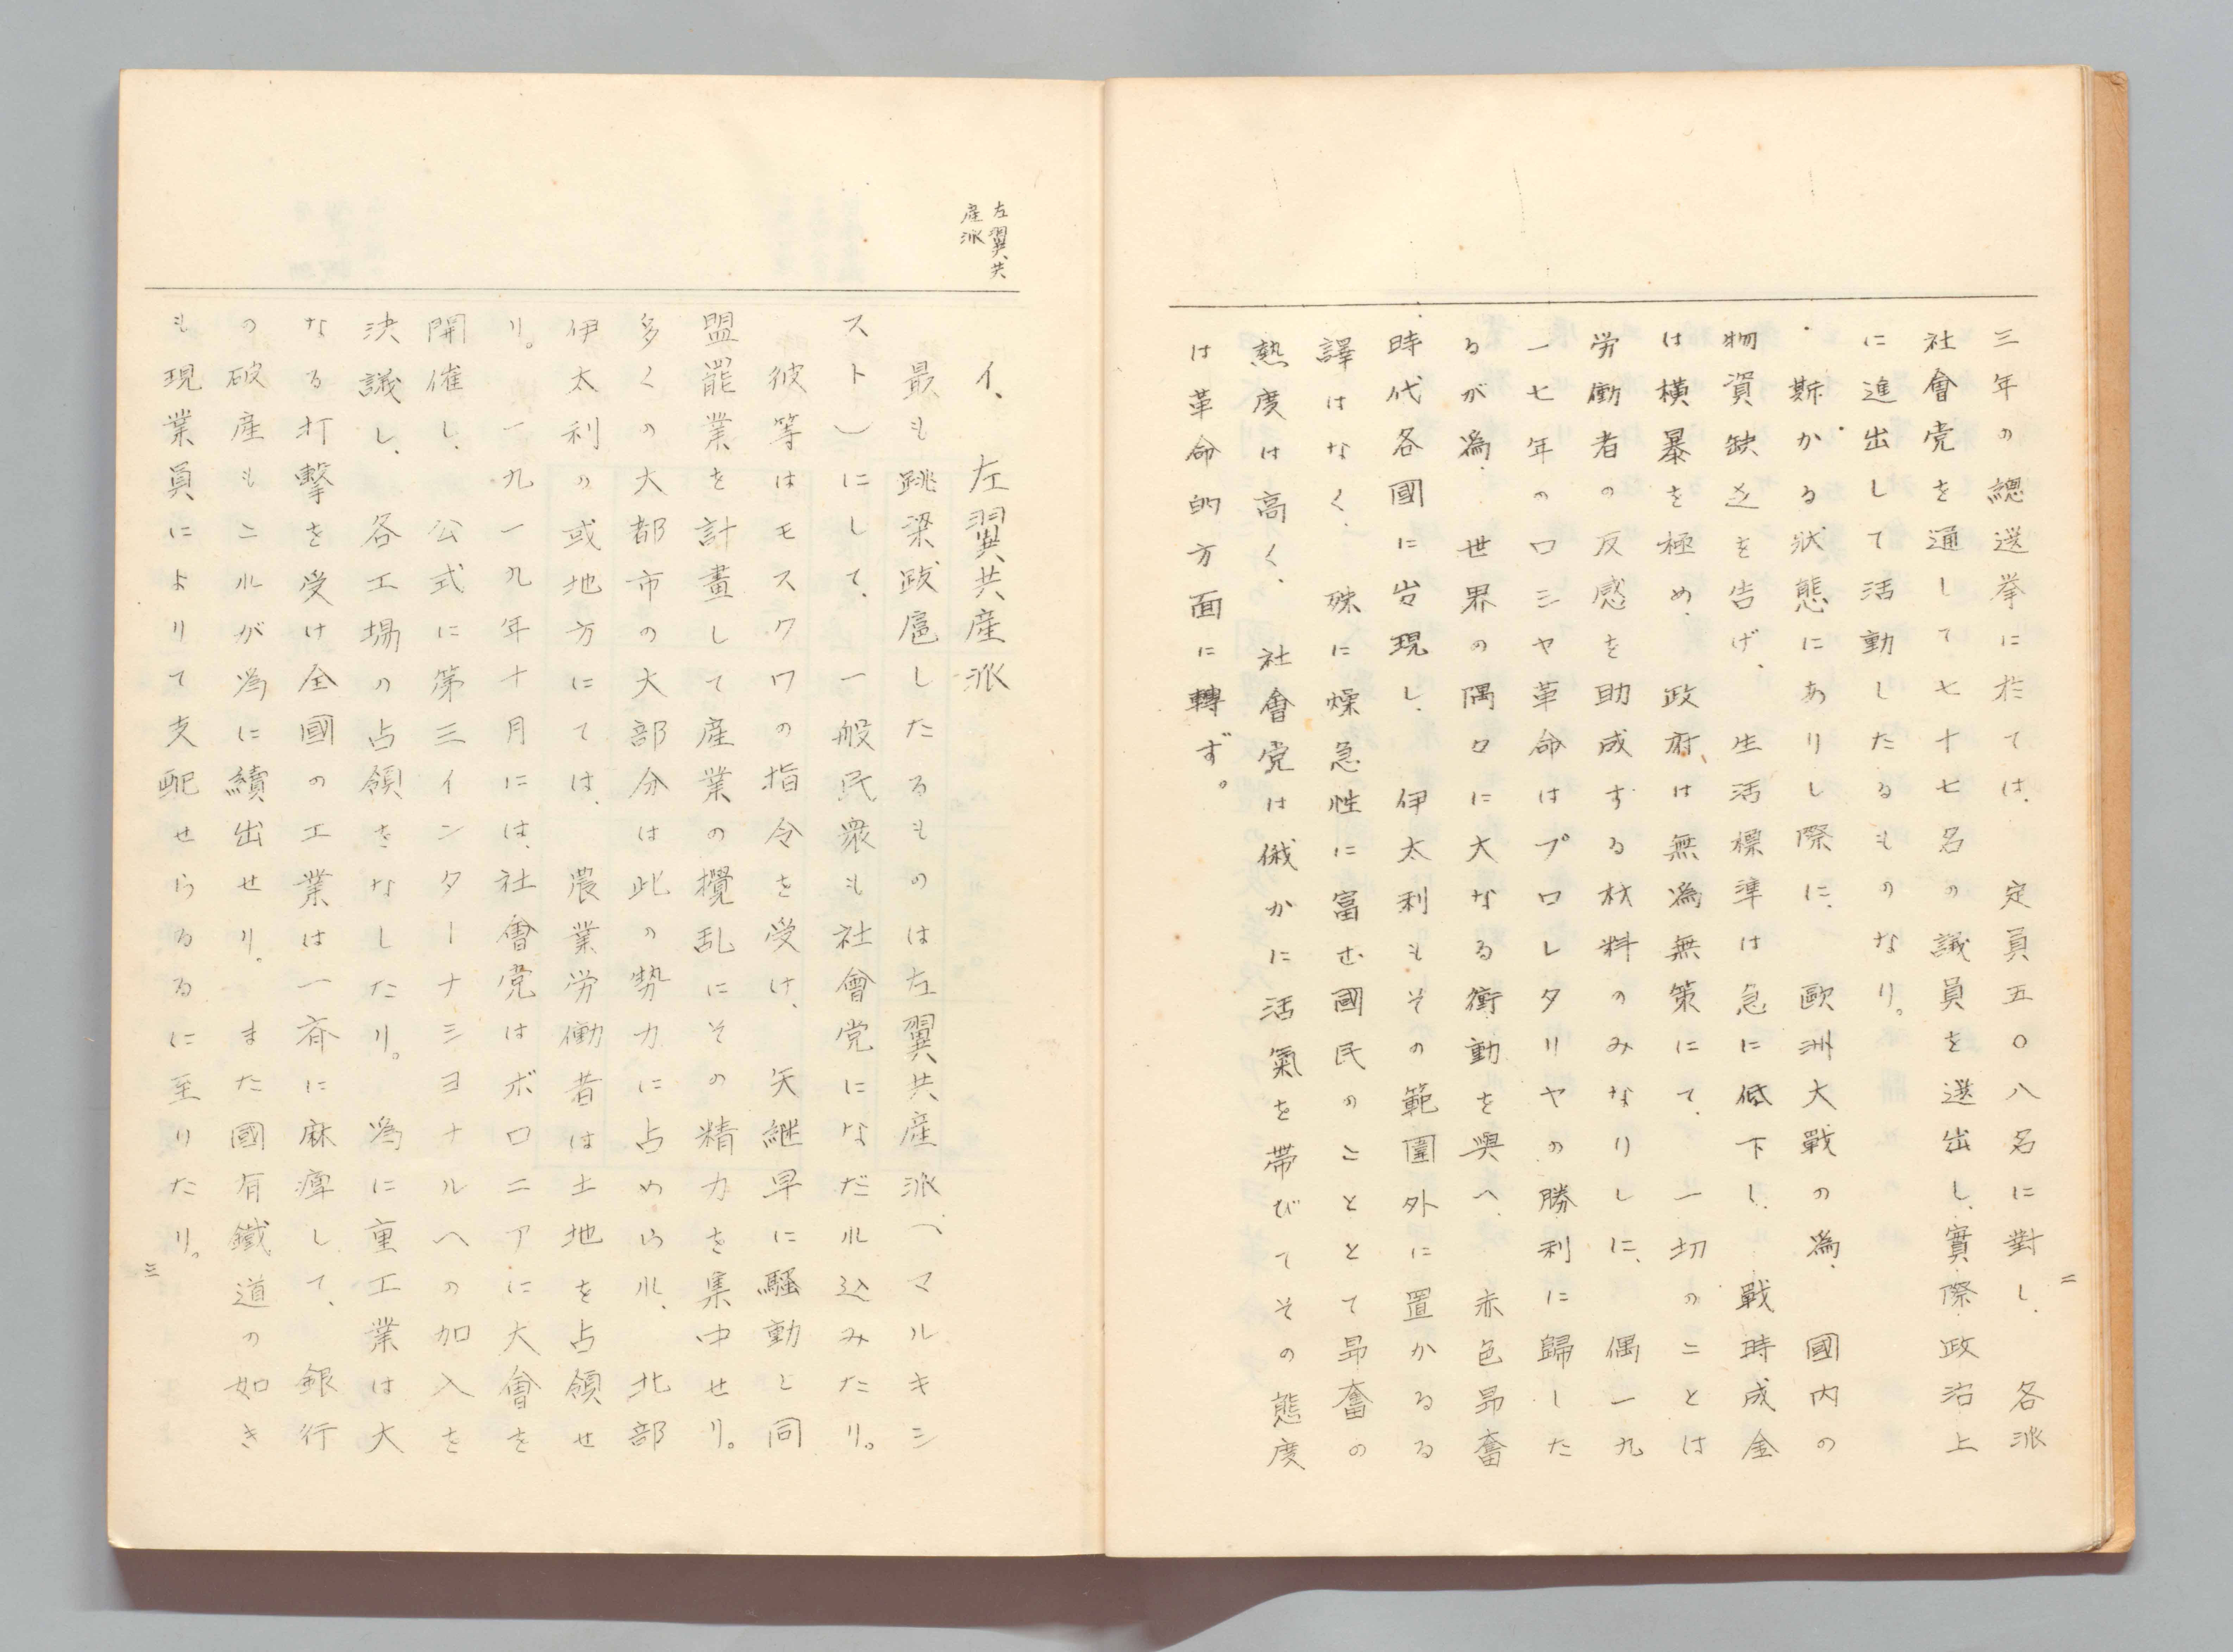 二
三年の總選挙に於ては、定員五〇八名に對し、各派
社會党を通して七十七名の議員を選出し、實際政治上
に進出して活動したるものなり。
斯かる状態にありし際に、歐洲大戰の為、國内の
物資缺乏を告げ、生活標準は急に低下し、戰時成金
は横暴を極め、政府は無為無策にて、一切のことは
労働者の反感を助成する材料のみなりしに、偶一九
一七年のロシヤ革命はプロレタリヤの勝利に歸した
るが為、世界の隅々に大なる衝動を與へ、赤色昂奮
時代各國に出現し、伊太利もその範圍外に置かるる
譯はなく、殊に燥急性に富む國民のこととて昂奮の
熱度は高く、社會党は俄かに活氣を帯びてその態度
は革命的方面に轉ず。
左翼共
産派
イ、左翼共産派
最も跳梁跋扈したるものは左翼共産派（マルキシ
スト）にして、一般民衆も社會党になだれ込みたり。
彼等はモスクワの指令を受け、矢継早に騒動と同
盟罷業を計畫して産業の攪乱にその精力を集中せり。
多くの大都市の大部分は此の勢力に占められ、北部
伊太利の或地方にては、農業労働者は土地を占領せ
り。一九一九年十月には、社會党はボロニアに大會を
開催し、公式に第三インターナショナルへの加入を
決議し、各工場の占領をなしたり。為に重工業は大
なる打撃を受け全國の工業は一斉に麻痺して、銀行
の破産もこれが為に續出せり。また國有鐵道の如き
も現業員によりて支配せらるるに至りたり。
三